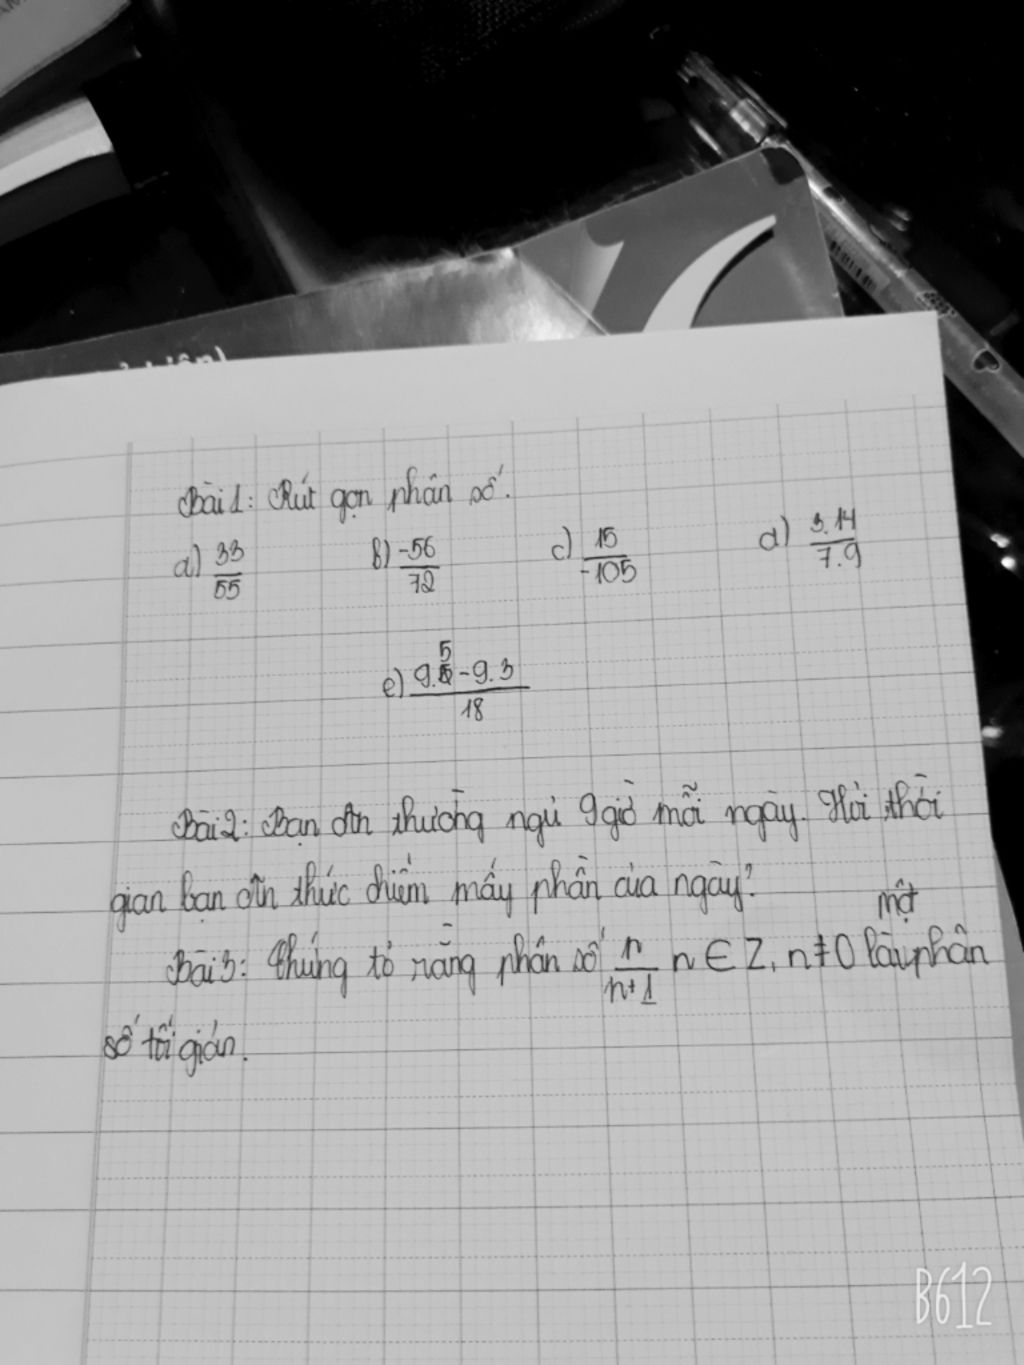 Bài 1: Rút gọn phân số.
a) 33/55 b) -56/72 c) 15/-105 d) 3.14/7.9
e) 9.5-9.3/18
Bài 2: Bạn An thường ngủ 9 giờ mỗi ngày. Hỏi thời
gian bạn An thức chiếm mấy phần của ngày?
Bài 3: Chứng tỏ rằng phân số n/n+1 n ∈ Z, n ≠ 0 là một phân
số tối giản.
B612